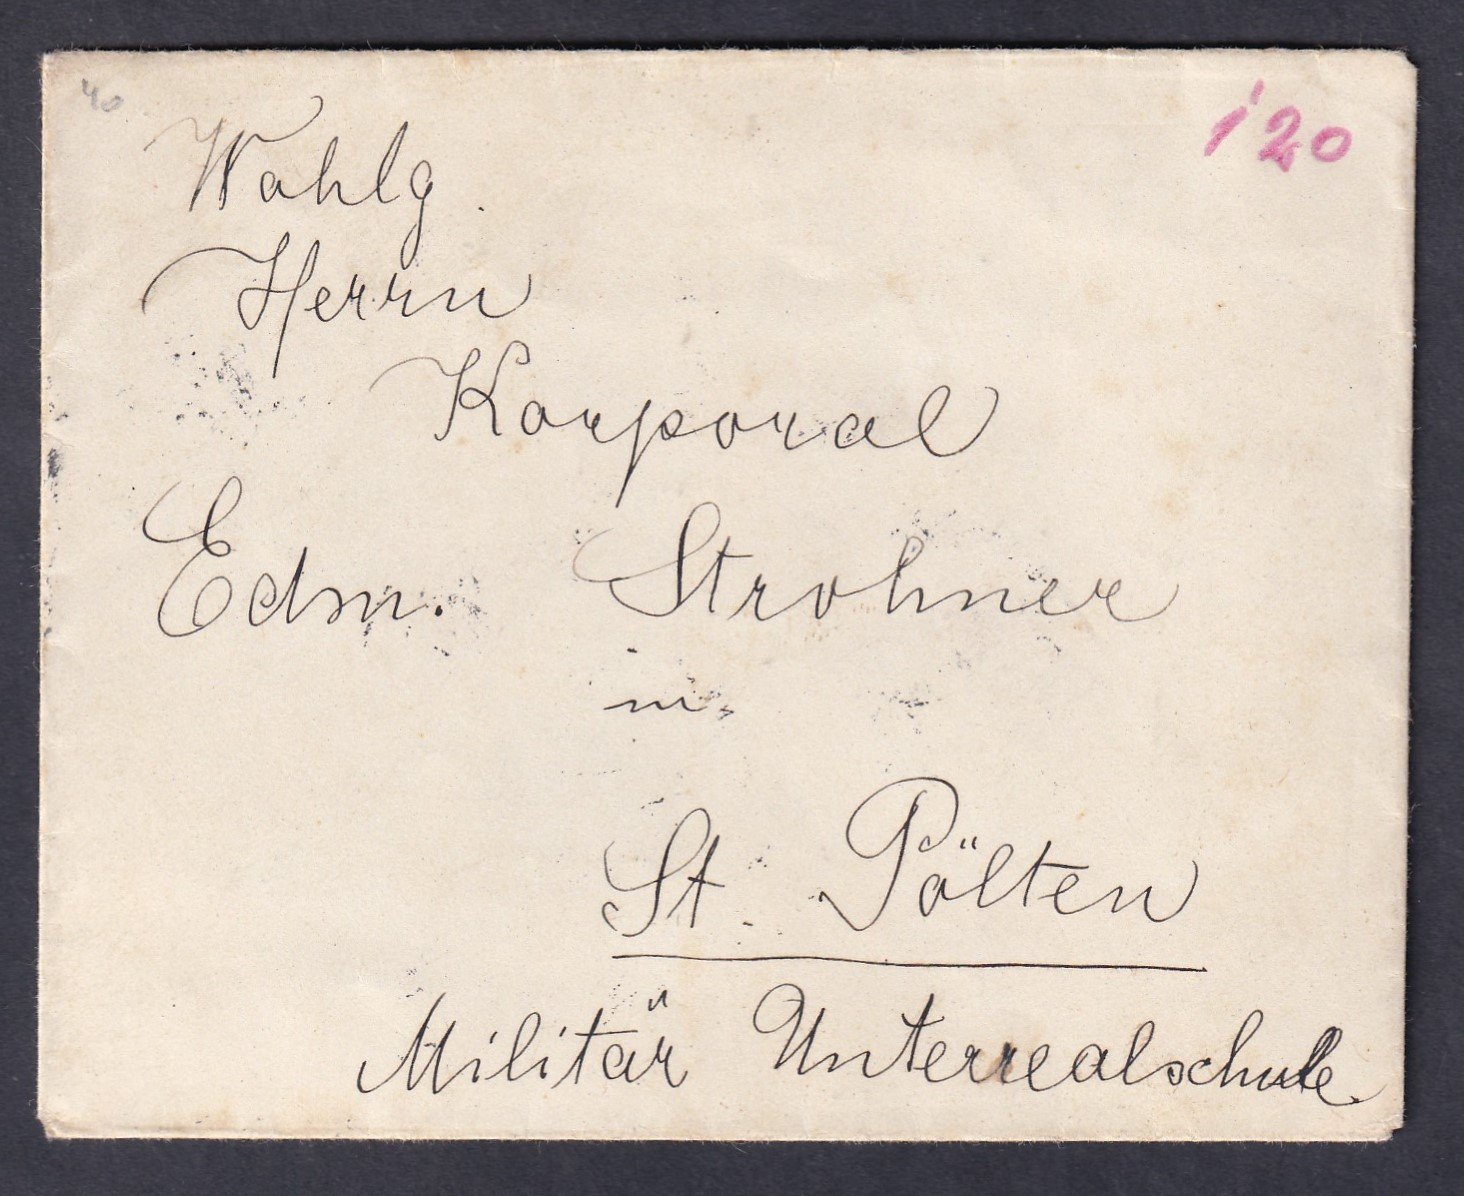 40
120
Wohlg.
Herrn
Korporal
Edm. Strohner
in
St. Pölten
Militär Unterrealschule